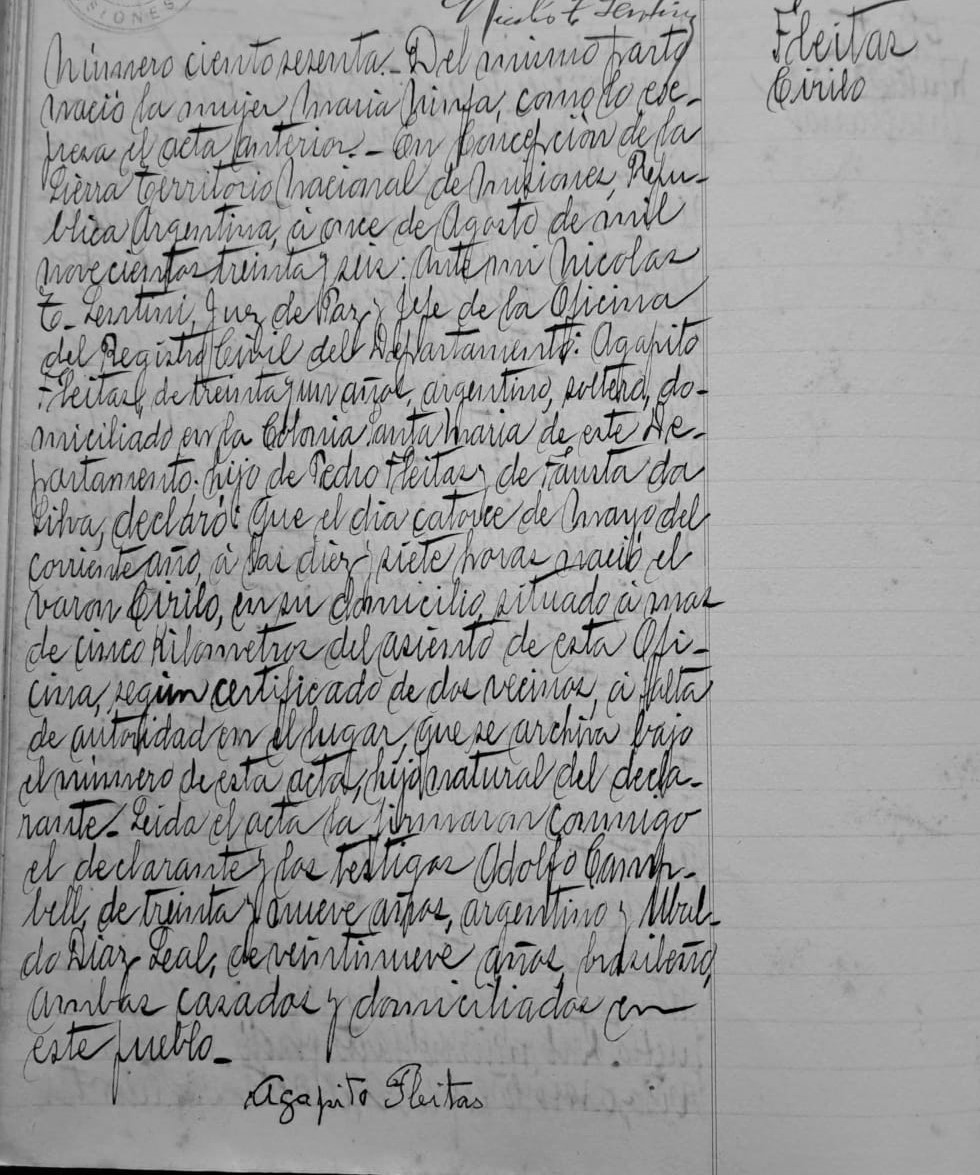 SIONES
Nicolas T. Lentini
Fleitas
Cirilo
Número ciento sesenta. - Del mismo parto
nació la mujer Maria Ninfa, como lo ex-
presa el acta anterior. - En Concepción de la
Sierra Territorio Nacional de Misiones, Repu-
blica Argentina, á once de Agosto de mil
novecientos treinta y seis: Ante mi Nicolas
T. Lentini, Juez de Paz y Jefe de la Oficina
del Registro Civil del Departamento: Agapito
Fleitas, de treinta y un años, argentino, soltero, do-
miciliado en la Colonia Santa Maria de este De-
partamento, hijo de Pedro Fleitas y de Fausta da
Silva, declaró: Que el dia catorce de Mayo del
corriente año, á las diez y siete horas nació el
varon Cirilo, en su domicilio, situado á mas
de cinco Kilometros del asiento de esta Ofi-
cina, según certificado de dos vecinos, á falta
de autoridad en el lugar, que se archiva bajo
el número de esta acta, hijo natural del decla-
rante. - Leida el acta la firmaron conmigo
el declarante y los testigos Adolfo Camp-
bell, de treinta y nueve años, argentino y Ubal-
do Diaz Leal, de veintinueve años, brasileño,
ambos casados y domiciliados en
este pueblo. -
Agapito Fleitas